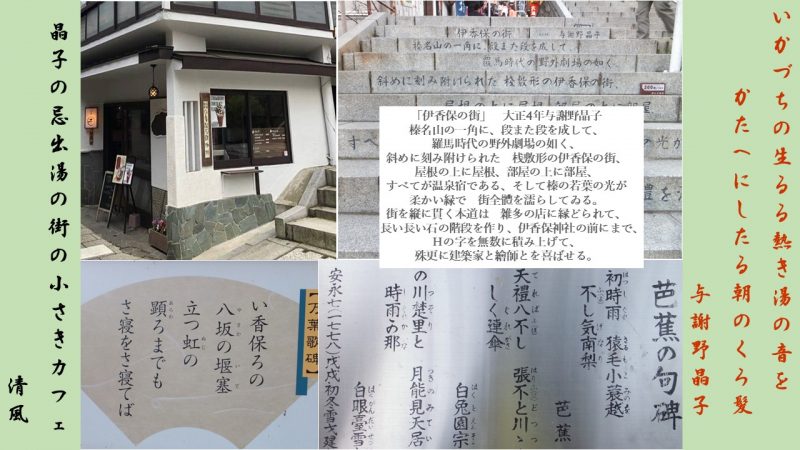 いかづちの生るる熱き湯の音を
かたへにしたる朝のくろ髪
与謝野晶子
伊香保の街 与謝野晶子
榛名山の一角に、段また段を成して、
羅馬時代の野外劇場の如く、
斜めに刻み附けられた 桟敷形の伊香保の街、
「伊香保の街」 大正4年与謝野晶子
榛名山の一角に、段また段を成して、
羅馬時代の野外劇場の如く、
斜めに刻み附けられた 桟敷形の伊香保の街、
屋根の上に屋根、部屋の上に部屋、
すべてが温泉宿である、そして榛の若葉の光が
柔かい緑で 街全體を濡らしてゐる。
街を縦に貫く本道は 雑多の店に縁どられて、
長い長い石の階段を作り、伊香保神社の前にまで、
Hの字を無数に積み上げて、
殊更に建築家と繪師とを喜ばせる。
芭蕉の句碑
初時雨 猿毛小蓑越
不し気南梨
芭蕉
天禮八不し 張不と川ゝ
しく連傘
白兎園宗
の川楚里と 月能見天居
時雨か那
白眼臺雪
安永七(一七七八)戊戌初冬雪弌建
【万葉歌碑】
い香保ろの
八坂の堰塞
立つ虹の
顕ろまでも
さ寝をさ寝てば
晶子の忌出湯の街の小さきカフェ
清風